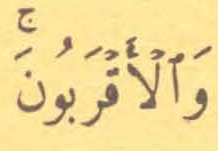 وَٱلْأَقْرَبُونَۚ